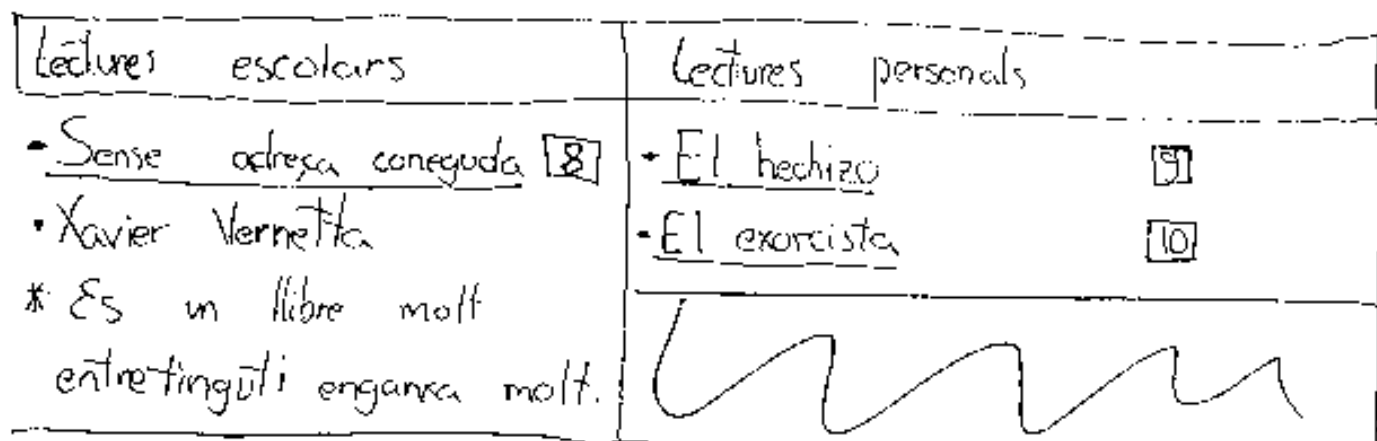 Lectures escolars
• Sense adreça coneguda 8
• Xavier Vernetta
* Es un llibre molt
entretingut i enganxa molt.
Lectures personals
• El hechizo 9
• El exorcista 10